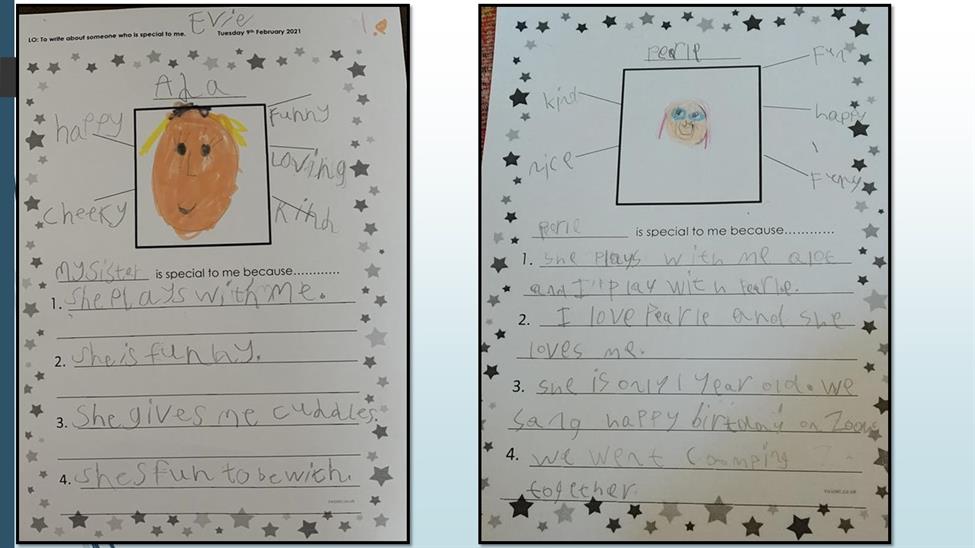 Evie
LO: To write about someone who is special to me.
Tuesday 9th February 2021
Ada
happy
Funny
Loving
Cheeky
Kind
My Sister is special to me because............
1. She plays with me.
2. She is funny.
3. She gives me cuddles.
4. Shes fun to be with.
twinkl.co.uk
pearle
Fun
kind
happy
nice
Funny
is special to me because............
1. she plays with me alot
and I play with Pearle.
2. I love Pearle and she
loves me.
3. she is only 1 year old. we
sang happy birthday on Zoom
4. we went
together.
twinkl.co.uk